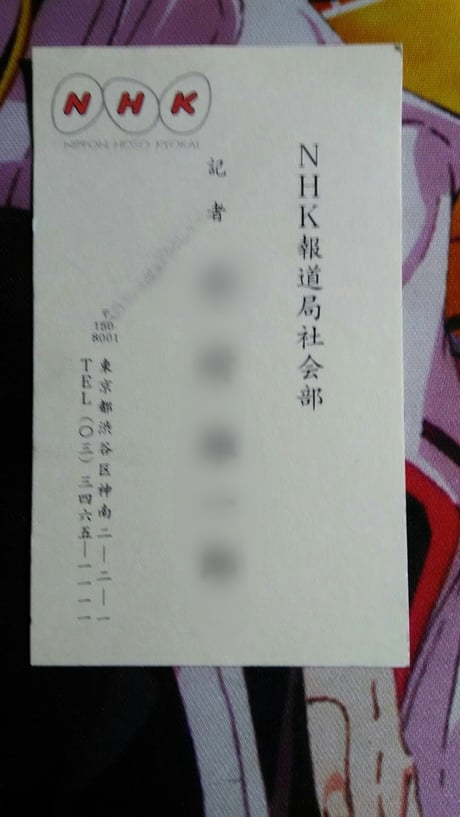 NHK
NIPPON HOSO KYOKAI
NHK報道局社会部
記者
〒
150-
8001
東京都渋谷区神南二―二―一
TEL(〇三)三四六五―一一一一